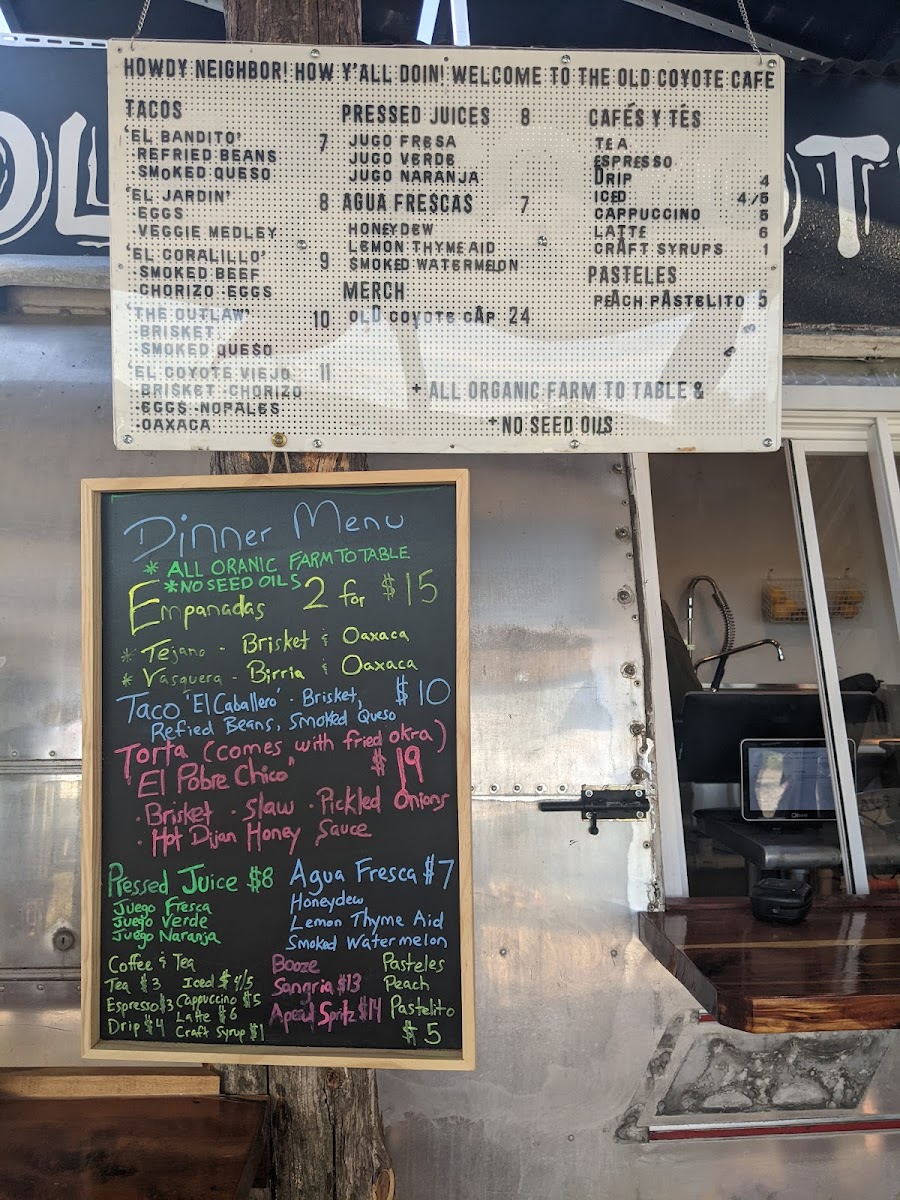 HOWDY NEIGHBOR! HOW Y'ALL DOIN! WELCOME TO THE OLD COYOTE CAFE
TACOS
'EL BANDITO' 7
·REFRIED BEANS
·SMOKED QUESO
'EL JARDIN' 8
·EGGS
·VEGGIE MEDLEY
'EL CORALILLO' 9
·SMOKED BEEF
·CHORIZO ·EGGS
'THE OUTLAW' 10
·BRISKET
·SMOKED QUESO
'EL COYOTE VIEJO 11
·BRISKET ·CHORIZO
·EGGS ·NOPALES
·OAXACA
PRESSED JUICES 8
JUGO FRESA
JUGO VERDE
JUGO NARANJA
AGUA FRESCAS 7
HONEYDEW
LEMON THYME AID
SMOKED WATERMELON
MERCH
OLD COYOTE CAP 24
CAFÉS Y TÊS
TEA
ESPRESSO
DRIP 4
ICED 4/5
CAPPUCCINO 5
LATTE 6
CRAFT SYRUPS 1
PASTELES
PEACH PASTELITO 5
+ ALL ORGANIC FARM TO TABLE &
+ NO SEED OILS
OL
OT
Dinner Menu
* ALL ORANIC FARM TO TABLE
* NO SEED OILS
Empanadas 2 for $15
* Tejano - Brisket & Oaxaca
* Vasquera - Birria & Oaxaca
Taco 'El Caballero' - Brisket, $10
Refied Beans, Smoked Queso
Torta (comes with fried okra)
"El Pobre Chico" $19
· Brisket · Slaw · Pickled Onions
· Hot Dijan Honey Sauce
Pressed Juice $8
Juego Fresca
Juego Verde
Juego Naranja
Agua Fresca $7
Honeydew
Lemon Thyme Aid
Smoked Watermelon
Coffee & Tea
Tea $3 Iced $4/5
Espresso $3 Cappuccino $5
Drip $4 Latte $6
Craft Syrup $1
Booze
Sangria $13
Aperul Spritz $14
Pasteles
Peach
Pastelito
$5